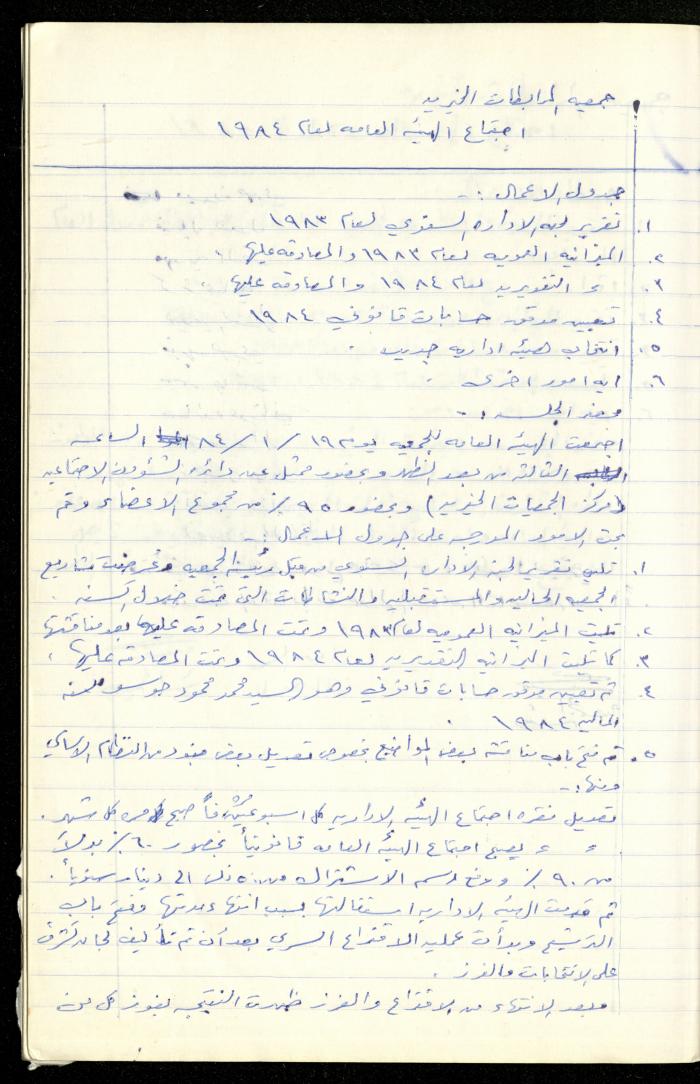 جمعيه المرابطات الخيريه
اجتماع الهيئه العامه لعام ١٩٨٤
جدول الاعمال :-
١. تقرير لجنه الاداره السنوي لعام ١٩٨٣
٢. الميزانيه العموميه لعام ١٩٨٣ والمصادقه عليها .
٣. = التقديريه لعام ١٩٨٤ والمصادقه عليها
٤. تعيين مدقق حسابات قانوني ١٩٨٤
٥. انتخاب هيئه اداريه جديده .
٦. ايه امور اخرى .
محضر الجلسه :-
اجتمعت الهيئه العامه للجمعيه يوم ١٩ / ١ / ٨٤ الساعه
الثالثه من بعد الظهر وبحضور ممثل عن دائره الشئون الاجتماعيه
(مركز الجمعيات الخيريه) وبحضور ٩٥ ٪ من مجموع الاعضاء وتم
بحث الامور المدرجه على جدول الاعمال :-
١. تلي تقرير لجنه الاداره السنوي من قبل رئيسه الجمعيه وعرضت مشاريع
الجمعيه الحاليه والمستقبليه والنشاطات التي تمت خلال السنه .
٢. تليت الميزانيه العموميه لعام ١٩٨٣ وتمت المصادقه عليها بعد مناقشتها
٣. كما تليت الميزانيه التقديريه لعام ١٩٨٤ وتمت المصادقه عليها .
٤. تم تعيين مدقق حسابات قانوني وهو السيد محمد محمود للسنه
الماليه ١٩٨٤ .
٥. تم فتح باب مناقشه بعض المواضيع بخصوص تعديل بعض بنود من النظام الاساسي
ومنها :-
تعديل فقره اجتماع الهيئه الاداريه كل اسبوعين فأصبح مره كل شهر .
= = يصبح اجتماع الهيئه العامه قانونياً بحضور ٦٠ ٪ بدلاً
من ٩٠ ٪ ورفع رسم الاشتراك من الى دينار سنوياً .
ثم قدمت الهيئه الاداريه استقالتها بسبب انتهاء مدتها وفتح باب
الترشيح وبدأت عمليه الاقتراع السري بعد أن تم تأليف لجان تشرف
على الانتخابات والفرز .
وبعد الانتهاء من الاقتراع والفرز ظهرت النتيجه بفوز كل من